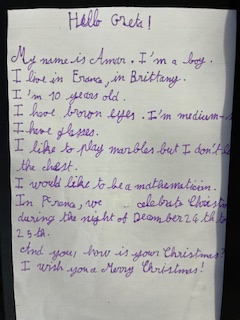 Hello Greta!
My name is Amar. I'm a boy.
I live in France, in Brittany.
I'm 10 years old.
I have brown eyes. I'm medium-s
I have glasses.
I like to play marbles but I don't l
the chest.
I would like to be a mathematician.
In France, we celebrate Christ
during the night of December 24th to
25th.
And you, how is your Christmas?
I wish you a Merry Christmas!